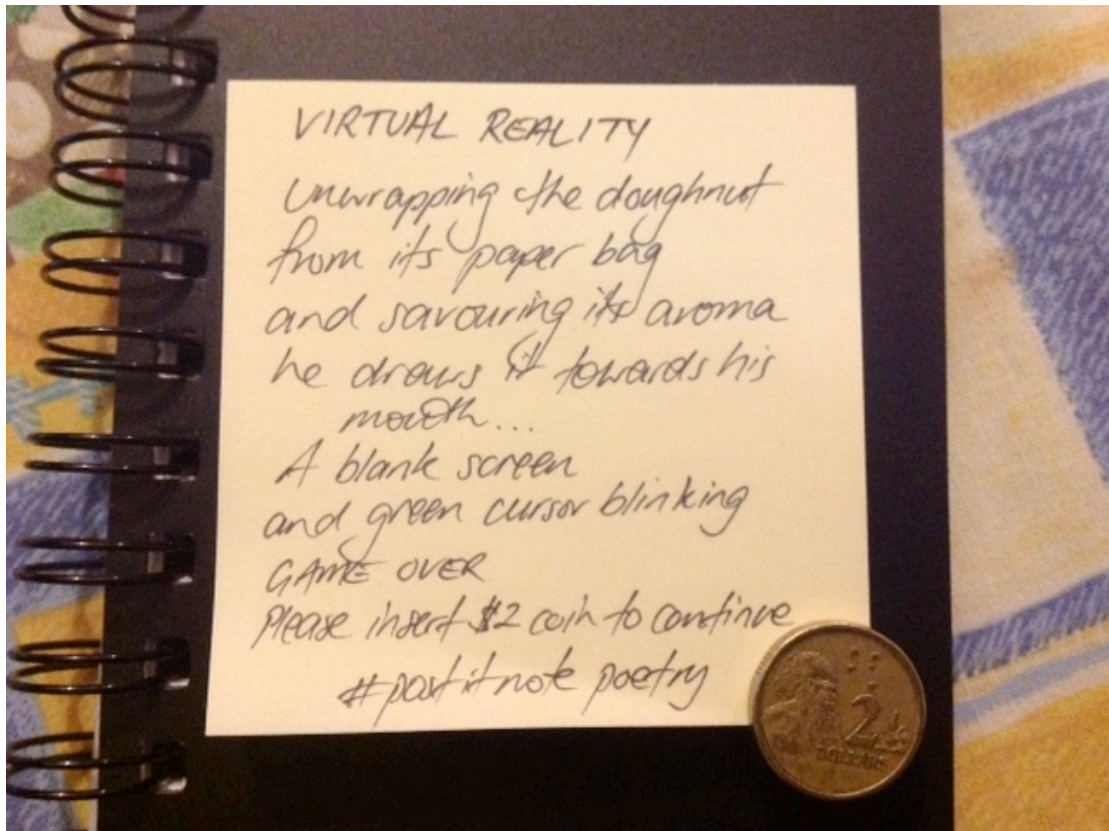 VIRTUAL REALITY
Unwrapping the doughnut
from its paper bag
and savouring its aroma
he draws it towards his
mouth...
A blank screen
and green cursor blinking
GAME OVER
Please insert $2 coin to continue
#postitnote poetry
2
DOLLARS